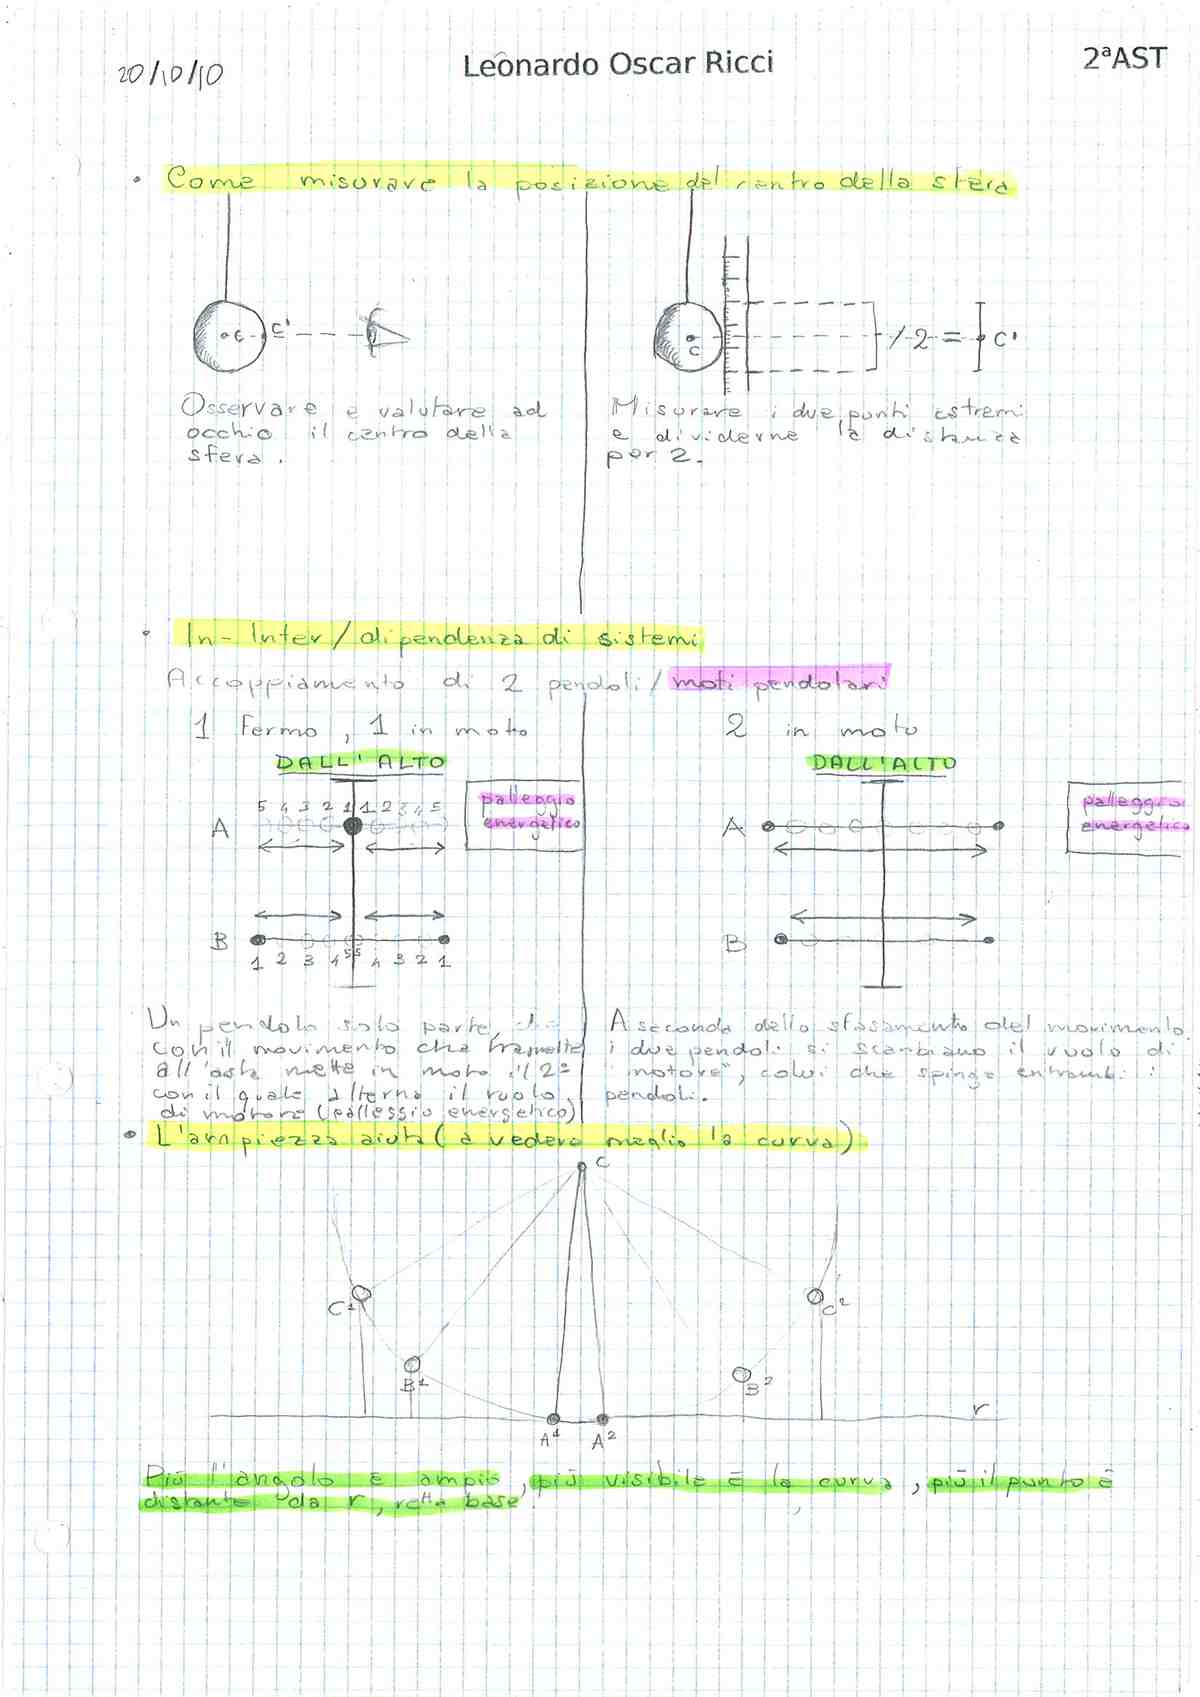 20/10/10
Leonardo Oscar Ricci
2ªAST
• Come misurare la posizione del centro della sfera
c C'
c
/ 2 = C'
Osservare e valutare ad
occhio il centro della
sfera.
Misurare i due punti estremi
e dividerne la distanza
per 2.
• In-Inter/dipendenza di sistemi
Accoppiamento di 2 pendoli/moti pendolari
1 Fermo, 1 in moto
2 in moto
DALL'ALTO
5 4 3 2 1 1 2 3 4 5
A
palleggio
energetico
B
1 2 3 4 5 5 4 3 2 1
DALL'ALTO
A
palleggio
energetico
B
Un pendolo solo parte, che
con il movimento che trasmette
all'asta mette in moto il 2º
con il quale alterna il ruolo
di motore (palleggio energetico)
A seconda dello sfasamento del movimento
i due pendoli si scambiano il ruolo di
"motore", colui che spinge entrambi i
pendoli.
• L'ampiezza aiuta (a vedere meglio la curva)
C
C1
C2
B1
B2
r
A1
A2
Più l'angolo è ampio, più visibile è la curva, più il punto è
distante da r, retta base.